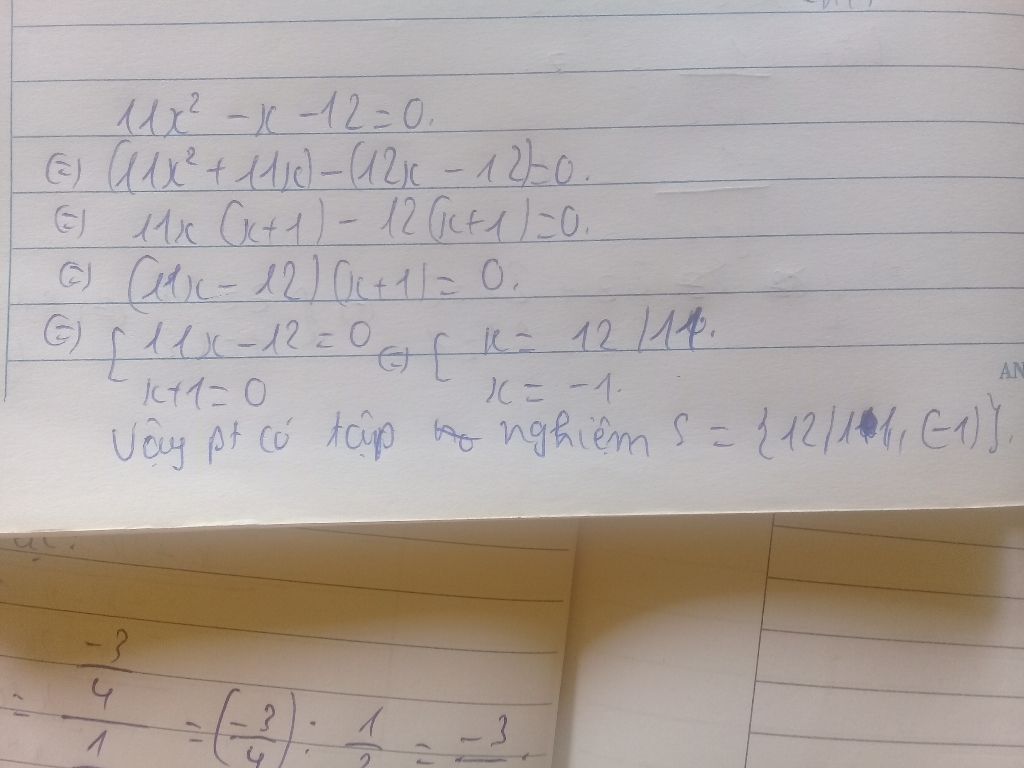 11x² - x - 12 = 0.
(=) (11x² + 11x) - (12x - 12) = 0.
(=) 11x (x+1) - 12 (x+1) = 0.
(=) (11x - 12) (x+1) = 0.
(=) [ 11x - 12 = 0 (=) [ x = 12/11.
x+1 = 0 x = -1.
Vậy pt có tập nghiệm S = {12/11, (-1)}.
AN
-3
4
= = (-3/4) : 1/2 = -3 .
1